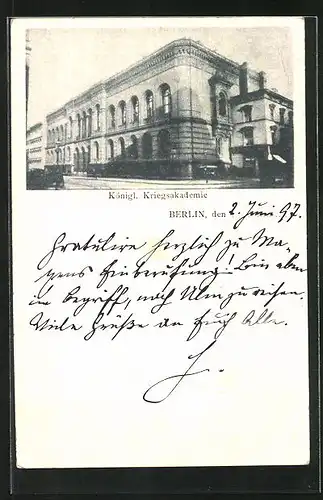 Königl. Kriegsakademie
BERLIN, den 2. Juni 97.
Gratulire herzlich zu Ma-
xens Einberufung! Bin eben
im Begriff, nach Ulm zu reisen.
Viele Grüße an Euch Alle.